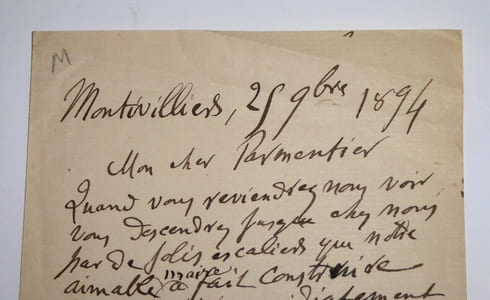 M
Montivilliers, 25 9bre 1894
Mon cher Parmentier
Quand vous reviendrez nous voir
vous descendrez jusque chez nous
par de jolis escaliers que notre
aimable maire a fait construire